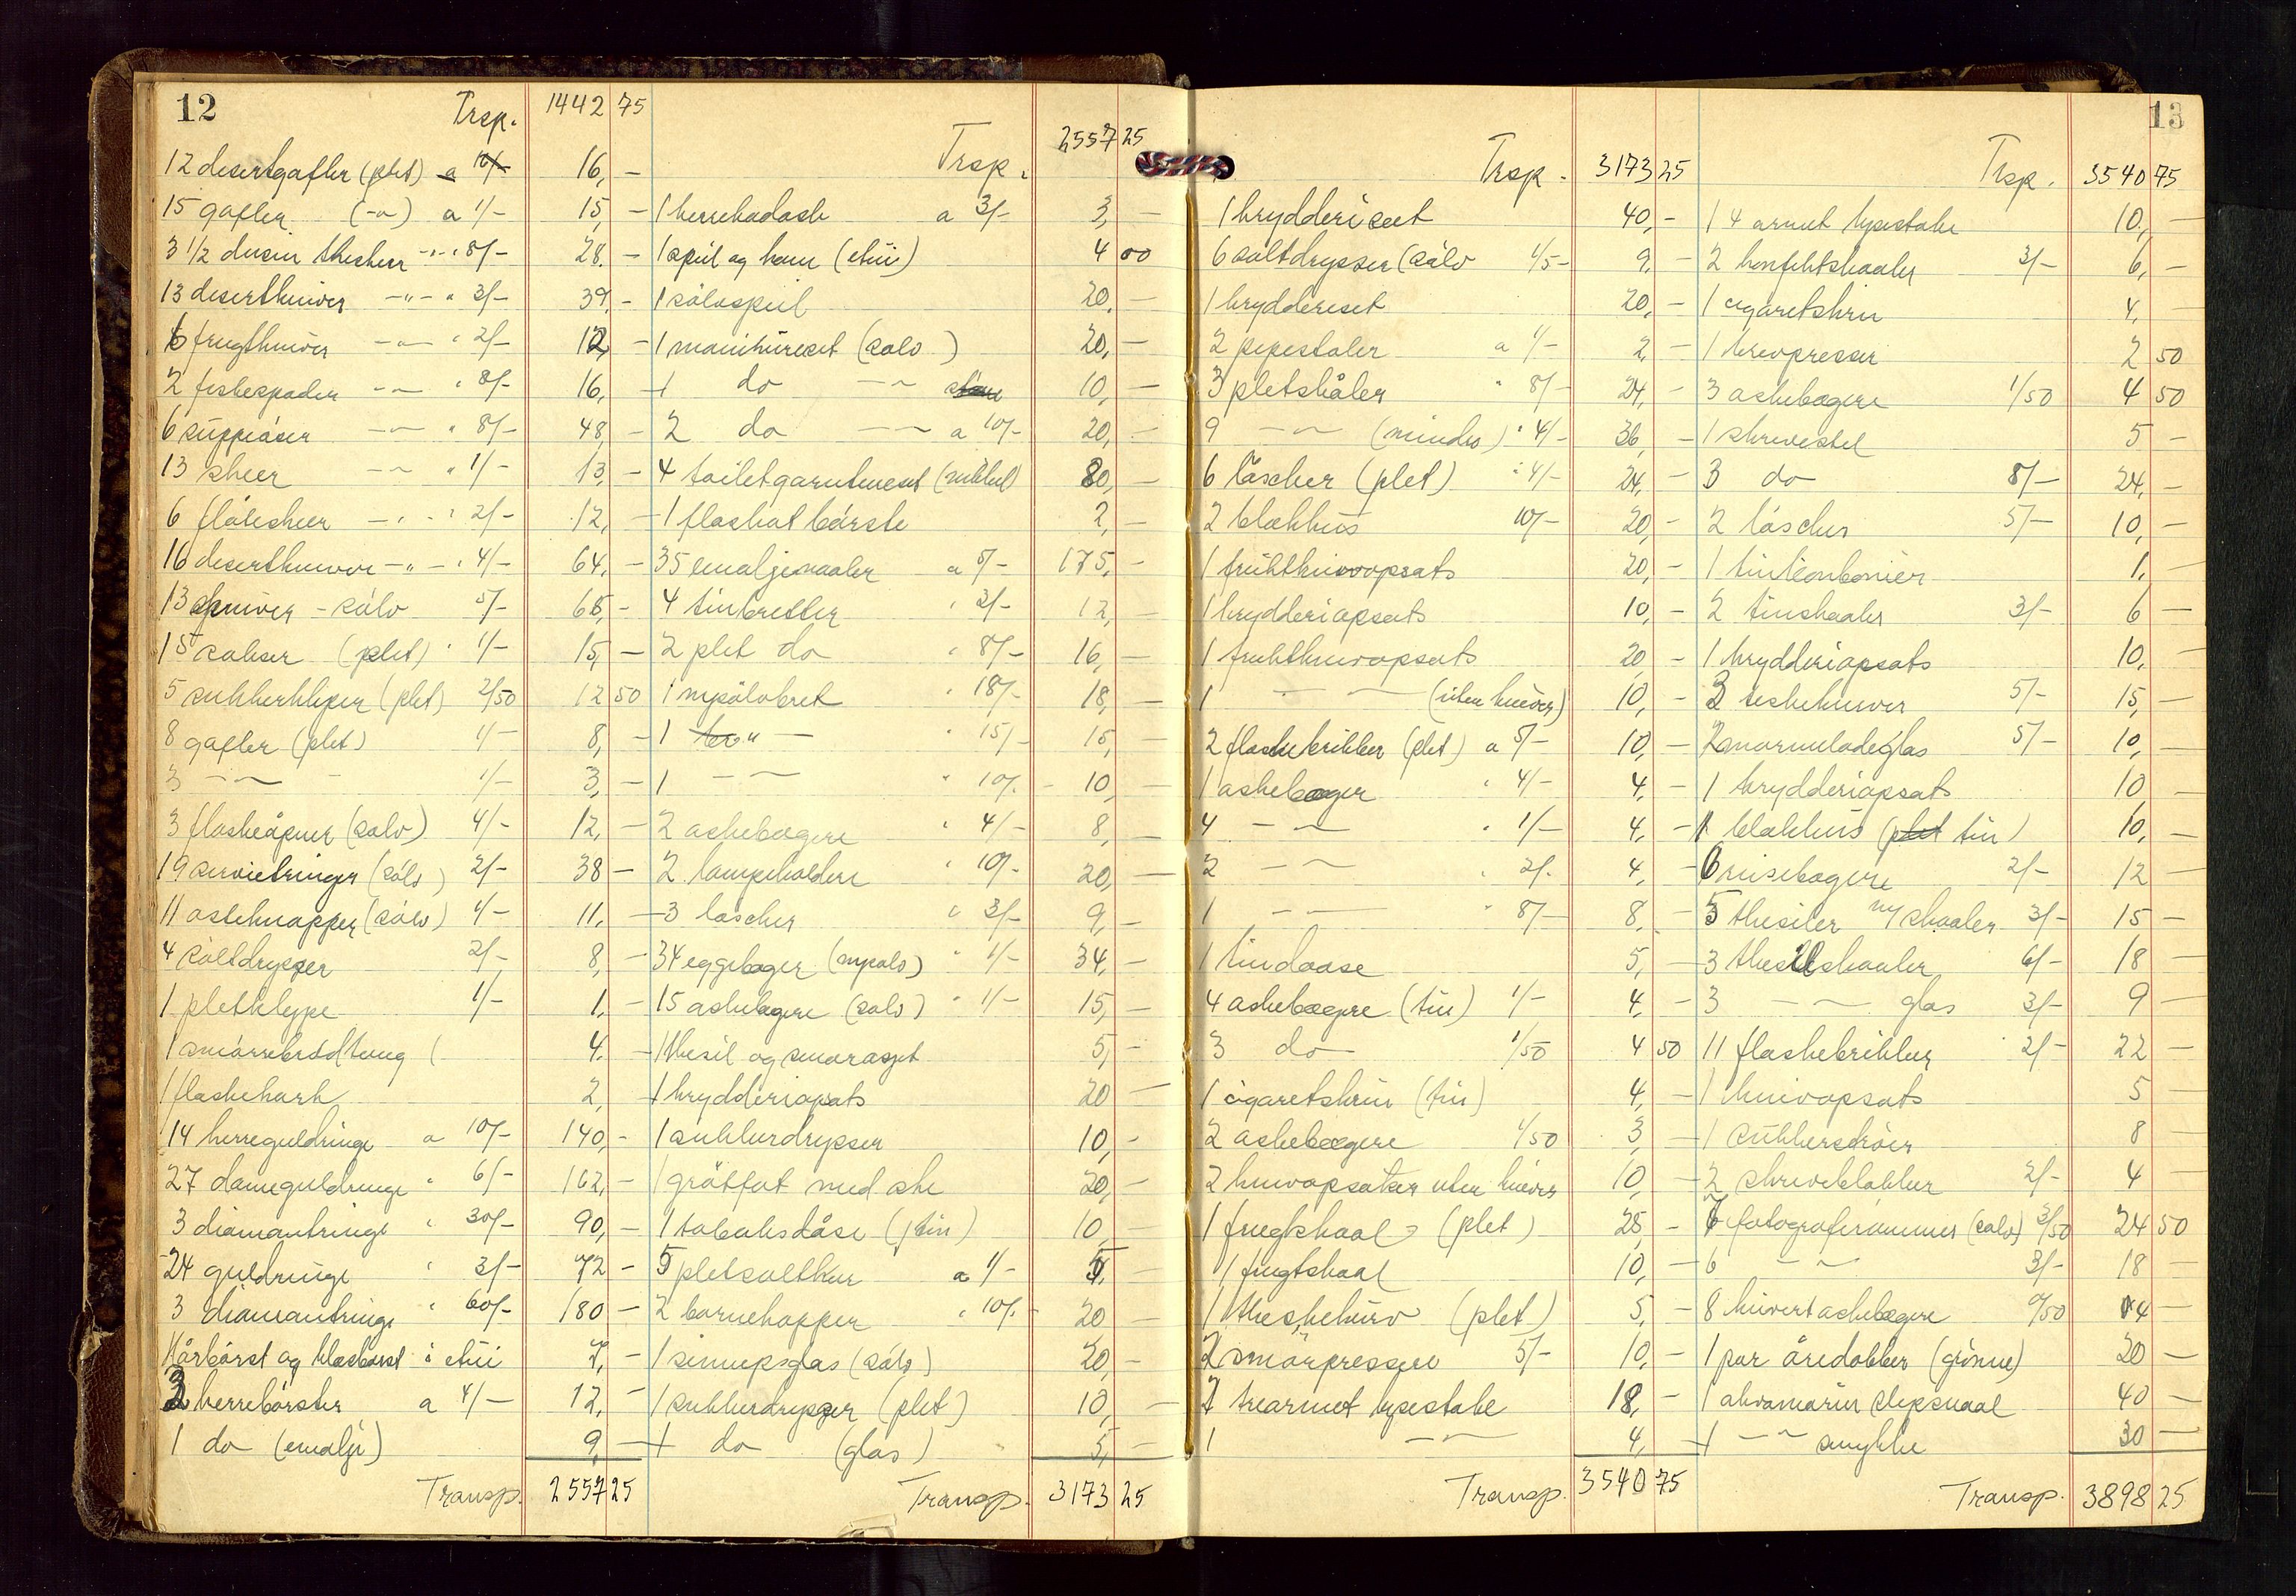 12
Trsp. 1442 75
12 desertgafler (plet) a 16,-
15 gafler (-"-) a 1/- 15,-
3 1/2 dusin theskeer -"- " 8/- 28.-
13 desertkniver -"- " 3/- 39,-
6 frugtkniver -"- " 2/- 12,-
2 fiskespader -"- " 8/- 16,-
6 suppeöser -"- " 8/- 48,-
13 skeer -"- " 1/- 13,-
6 flöteskeer -"- " 2/- 12,-
16 desertkniver -"- " 4/- 64,-
13 kniver - sölv 5/- 65,-
15 sakser (plet) " 1/- 15,-
5 sukkerklyper (plet) 2/50 12 50
8 gafler (plet) 1/- 8,-
3 -"- 1/- 3,-
3 flaskeåpner (sølv) 4/- 12,-
19 servietringer (sölv) 2/- 38 -
11 osteknapper (sölv) 1/- 11,-
4 saltdrysser 2/- 8,-
1 pletklype 1/- 1,-
1 smörrebrödtang ( 4.-
1 flaskekork 2,-
14 herreguldringe a 10/- 140,-
27 dameguldringe " 6/- 162,-
3 diamantringe " 30/- 90,-
24 guldringe " 3/- 72 -
3 diamantringe " 60/- 180 -
Hårbörst og klædbörst i etui 7,-
3 herrebörster a 4/- 12,-
1 do (emalje) 9,-
Transp. 2557 25
Trsp. 2557 25
1 a 3/- 3,-
1 speil og kam (etui) 4 00
1 sölvspeil 20.-
1 manikureset (sølv) 20,-
1 do -"- 10,-
2 do -"- a 10/- 20,-
4 toiletgarntment (nikkel) 80,-
1 flaskat börste 2,-
35 emaljenaaler a 5/- 175,-
4 tinbretter " 3/- 12,-
2 plet do " 8/- 16,-
1 nysölvbret " 18/- 18,-
1 -"- " 15/- 15,-
1 -"- " 10/- 10,-
2 askebægere " 4/- 8,-
2 lampeholdere " 10/- 20,-
3 løscher " 3/- 9,-
34 eggebæger (nysølv) " 1/- 34,-
15 askebægere (sølv) " 1/- 15,-
1 thesil og 5,-
1 krydderiopsats 20 -
1 sukkerdrysser 10,-
1 grötfat med ske 20,-
1 tobaksdåse (tin) 10,-
5 pletsaltkar a 1/- 5,-
2 barnekopper " 10/- 20 -
1 sennepsglas (sölv) 20,-
1 sukkerdrysser (plet) 10,-
1 do (glas) 5,-
Transp. 3173 25
Trsp. 3173 25
1 krydderiset 40,-
6 saltdrysser (sölv 1/5- 9,-
1 krydderiset 20,-
2 pipestaler a 1/- 2,-
3 pletskåler " 8/- 24,-
9 -"- (mindre) " 4/- 36,-
6 löscher (plet) " 4/- 24,-
2 blækhus 10/- 20,-
1 früktknivopsats 20,-
1 krydderiopsats 10,-
1 fruktknivopsats 20 -
1 -"- (uten kniver) 10,-
2 flaskebrikker (plet) a 5/- 10,-
1 askebæger " 4/- 4,-
4 -"- " 1/- 4,-
2 -"- " 2/- 4,-
1 -"- " 8/- 8,-
1 tindaase 5,-
4 askebægere (tin) 1/- 4,-
3 do 1/50 4 50
1 cigaretskrin (tin) 4,-
2 askebægere 1/50 3,-
2 knivopsatser uten kniver 10,-
1 frugtskaal (plet) 25,-
1 frugtskaal 10,-
1 theskekurv (plet) 5,-
2 smörpressere 5/- 10,-
2 trearmet lysestake 18,-
1 -"- 4,-
Transp. 3540 75
13
Trsp. 3540 75
1 4 armet lysestake 10,-
2 konfektskaaler 3/- 6,-
1 cigaretskrin 4,-
1 brevpresser 2 50
3 askebægere 1/50 4 50
1 skrivestel 5 -
3 do 8/- 24,-
2 löscher 5/- 10,-
1 tinbonbonier 1,-
2 tinskaaler 3/- 6 -
1 krydderiopsats 10,-
3 teskekurver 5/- 15,-
2 marmeladeglas 5/- 10,-
1 krydderiopsats 10 -
1 blækhus (tin) 10,-
6 reisebægere 2/- 12 -
5 thesiler m/ skaaler 3/- 15 -
3 thesilskaaler 6/- 18 -
3 -"- glas 3/- 9 -
11 flaskebrikker 2/- 22 -
1 knivopsats 5 -
1 sukkerströer 8 -
2 skriveblokker 2/- 4 -
7 fotograferammer (sølv) 3/50 24 50
6 -"- 3/- 18 -
8 kuvertaskebægere 0/50 4 -
1 par öredobber (grönne) 20 -
1 akvamarin slipsnaal 40 -
1 -"- smykke 30 -
Transp. 3898 25